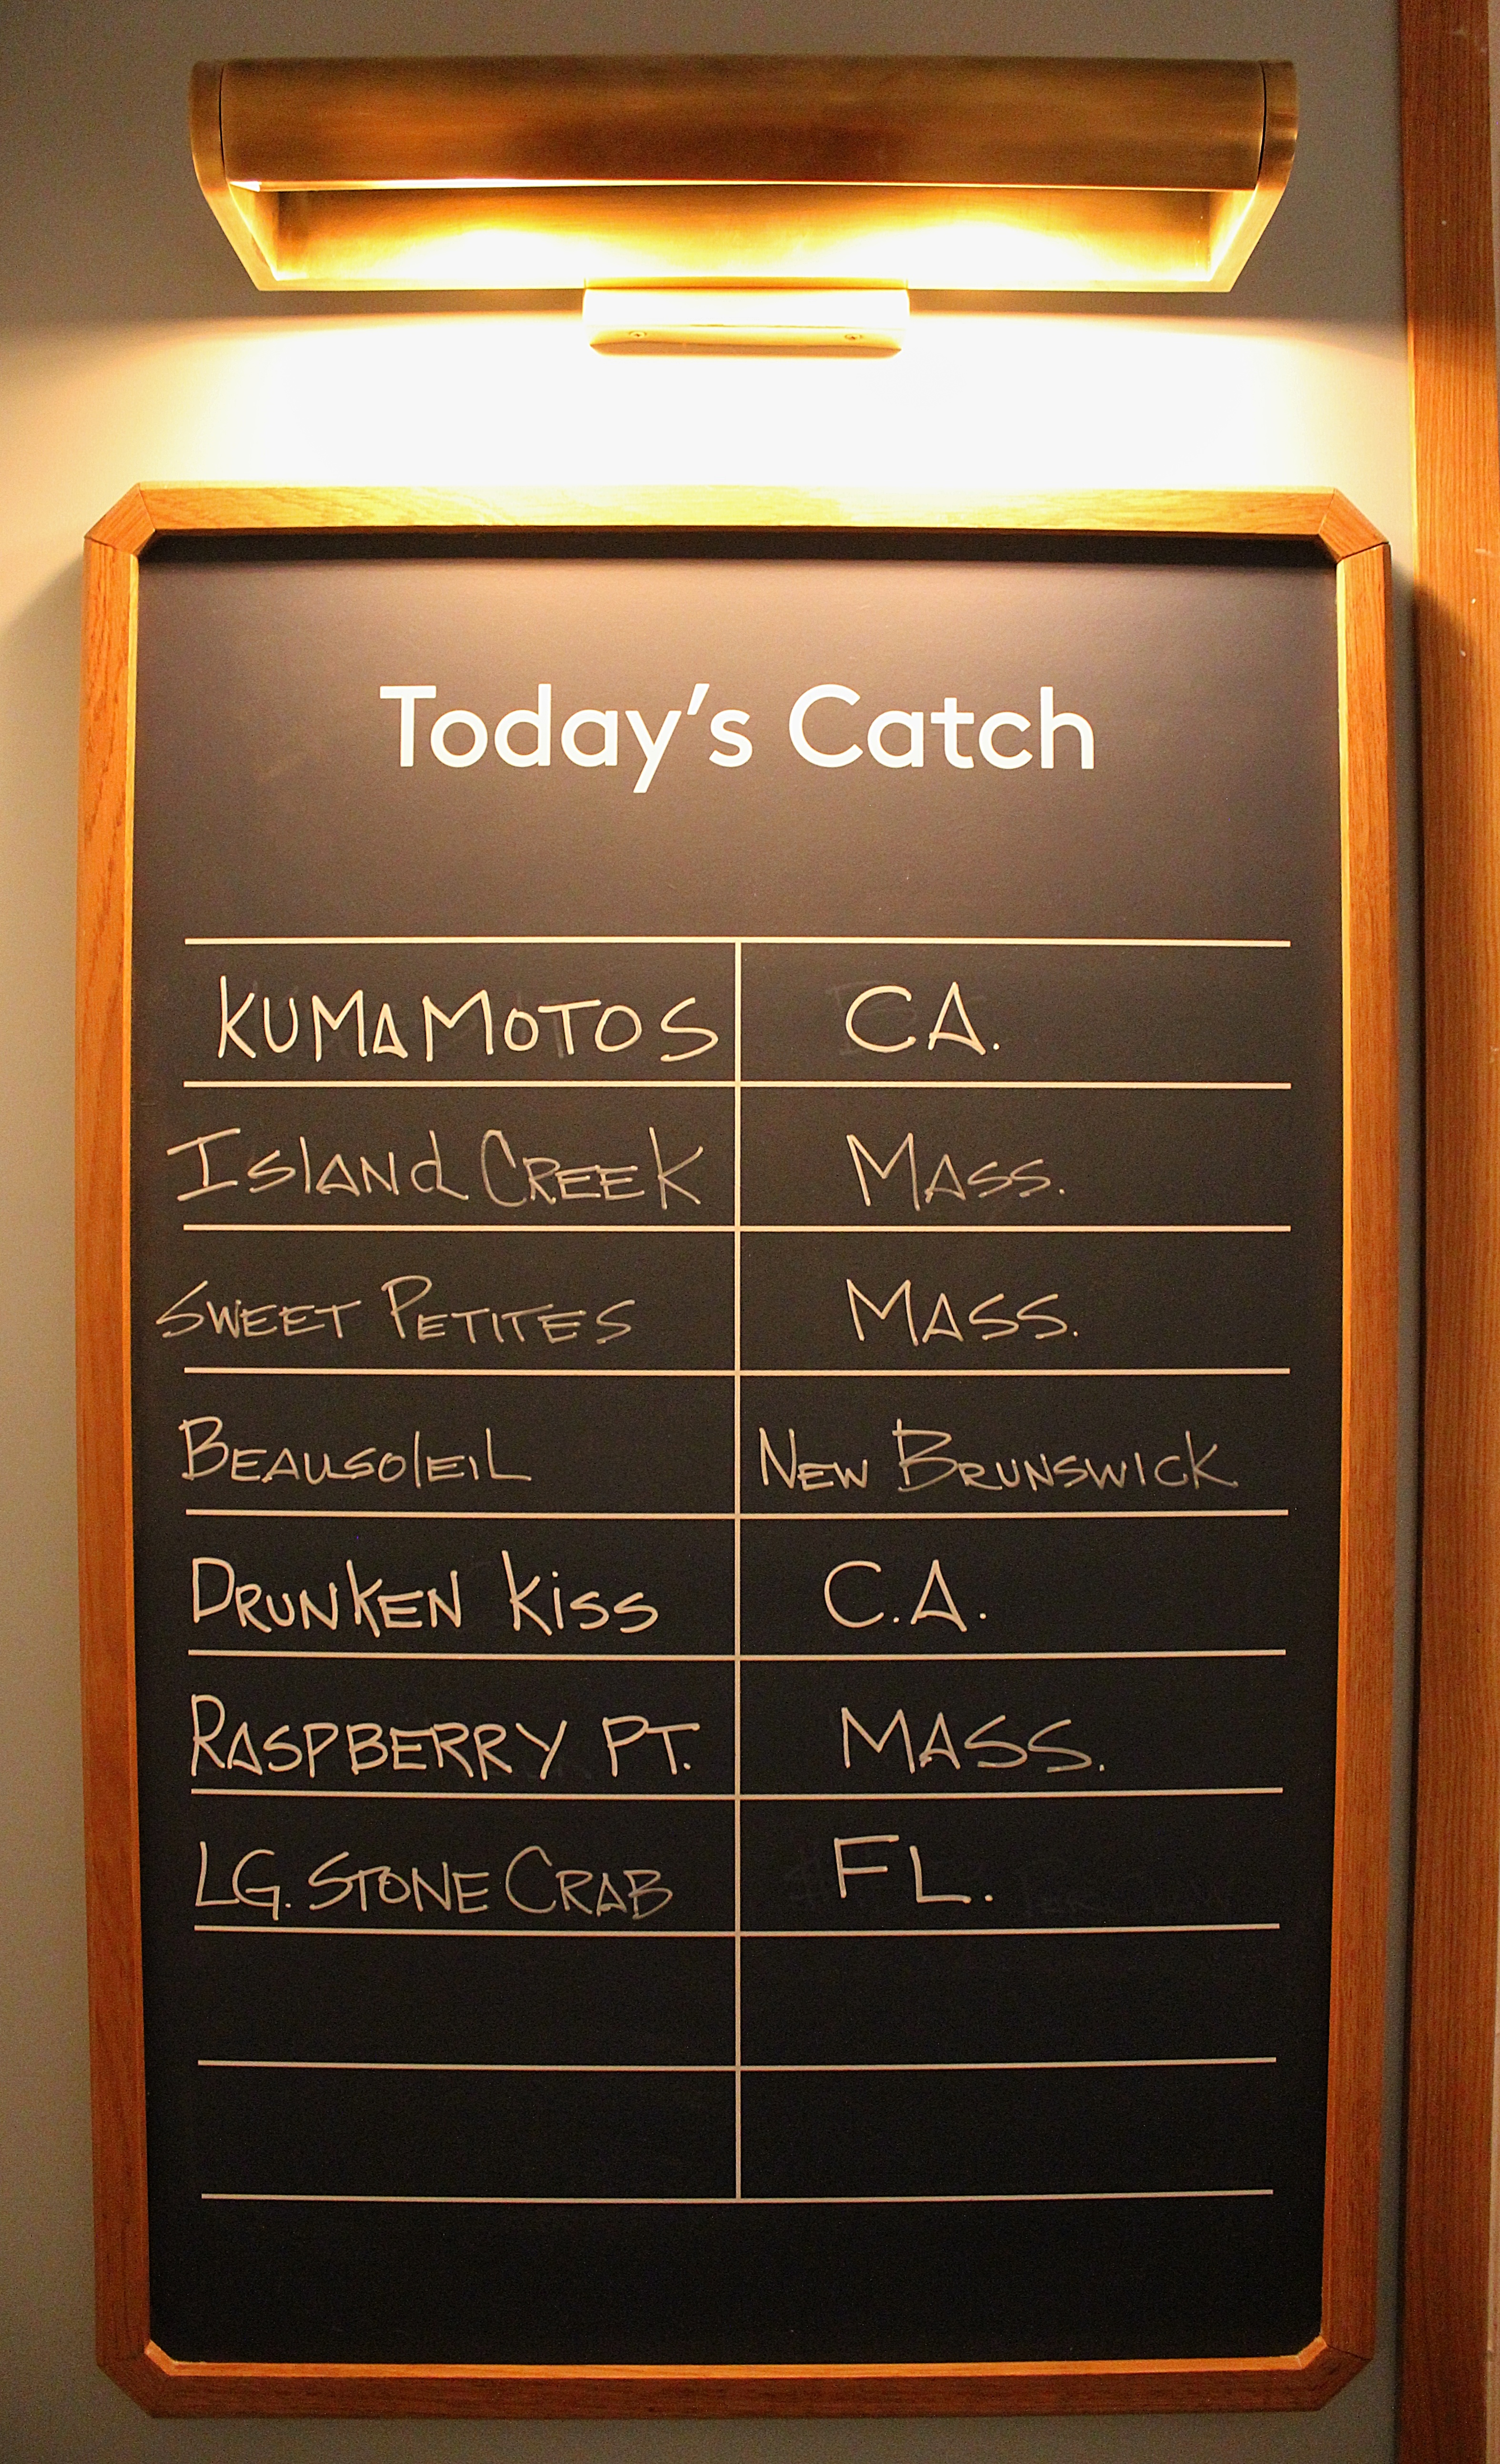 Today's Catch
KUMAMOTOS CA.
ISLANd CREEK MASS.
SWEET PETITES MASS.
BEAUSOlEIL NEW BRUNSWICK
DRUNKEN KiSS C.A.
RASPBERRY PT. MASS.
LG. STONE CRAB FL.